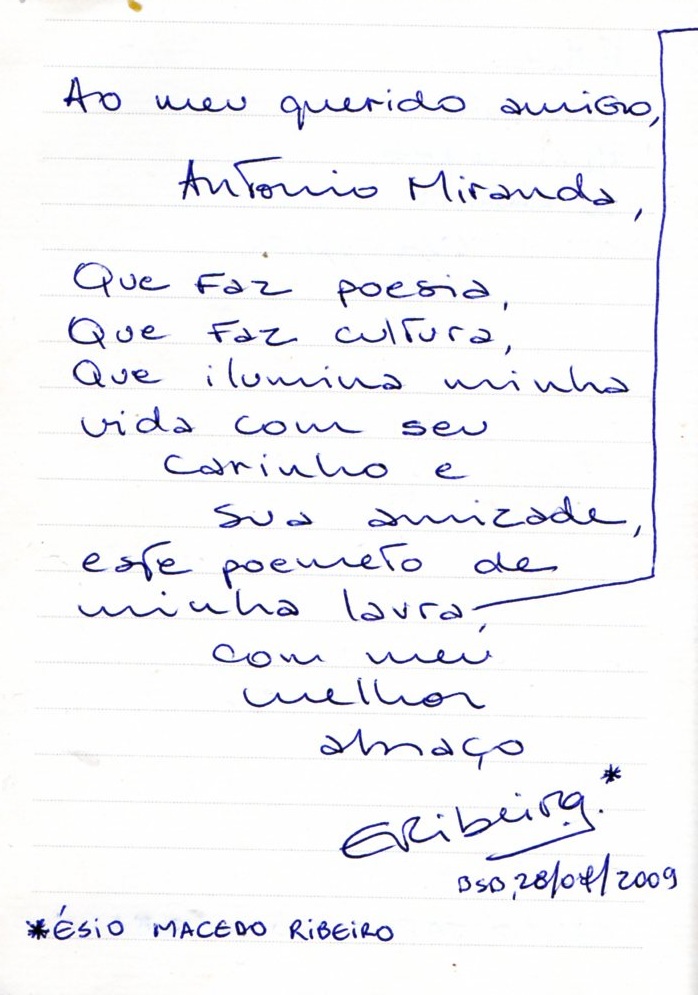 Ao meu querido amigo,
Antonio Miranda,
Que faz poesia,
Que faz cultura,
Que ilumina minha
vida com seu
carinho e
sua amizade,
este poemeto de
minha lavra,
com meu
melhor
abraço
ERibeiro.*
BSB, 28/07/2009
*ÉSIO MACEDO RIBEIRO